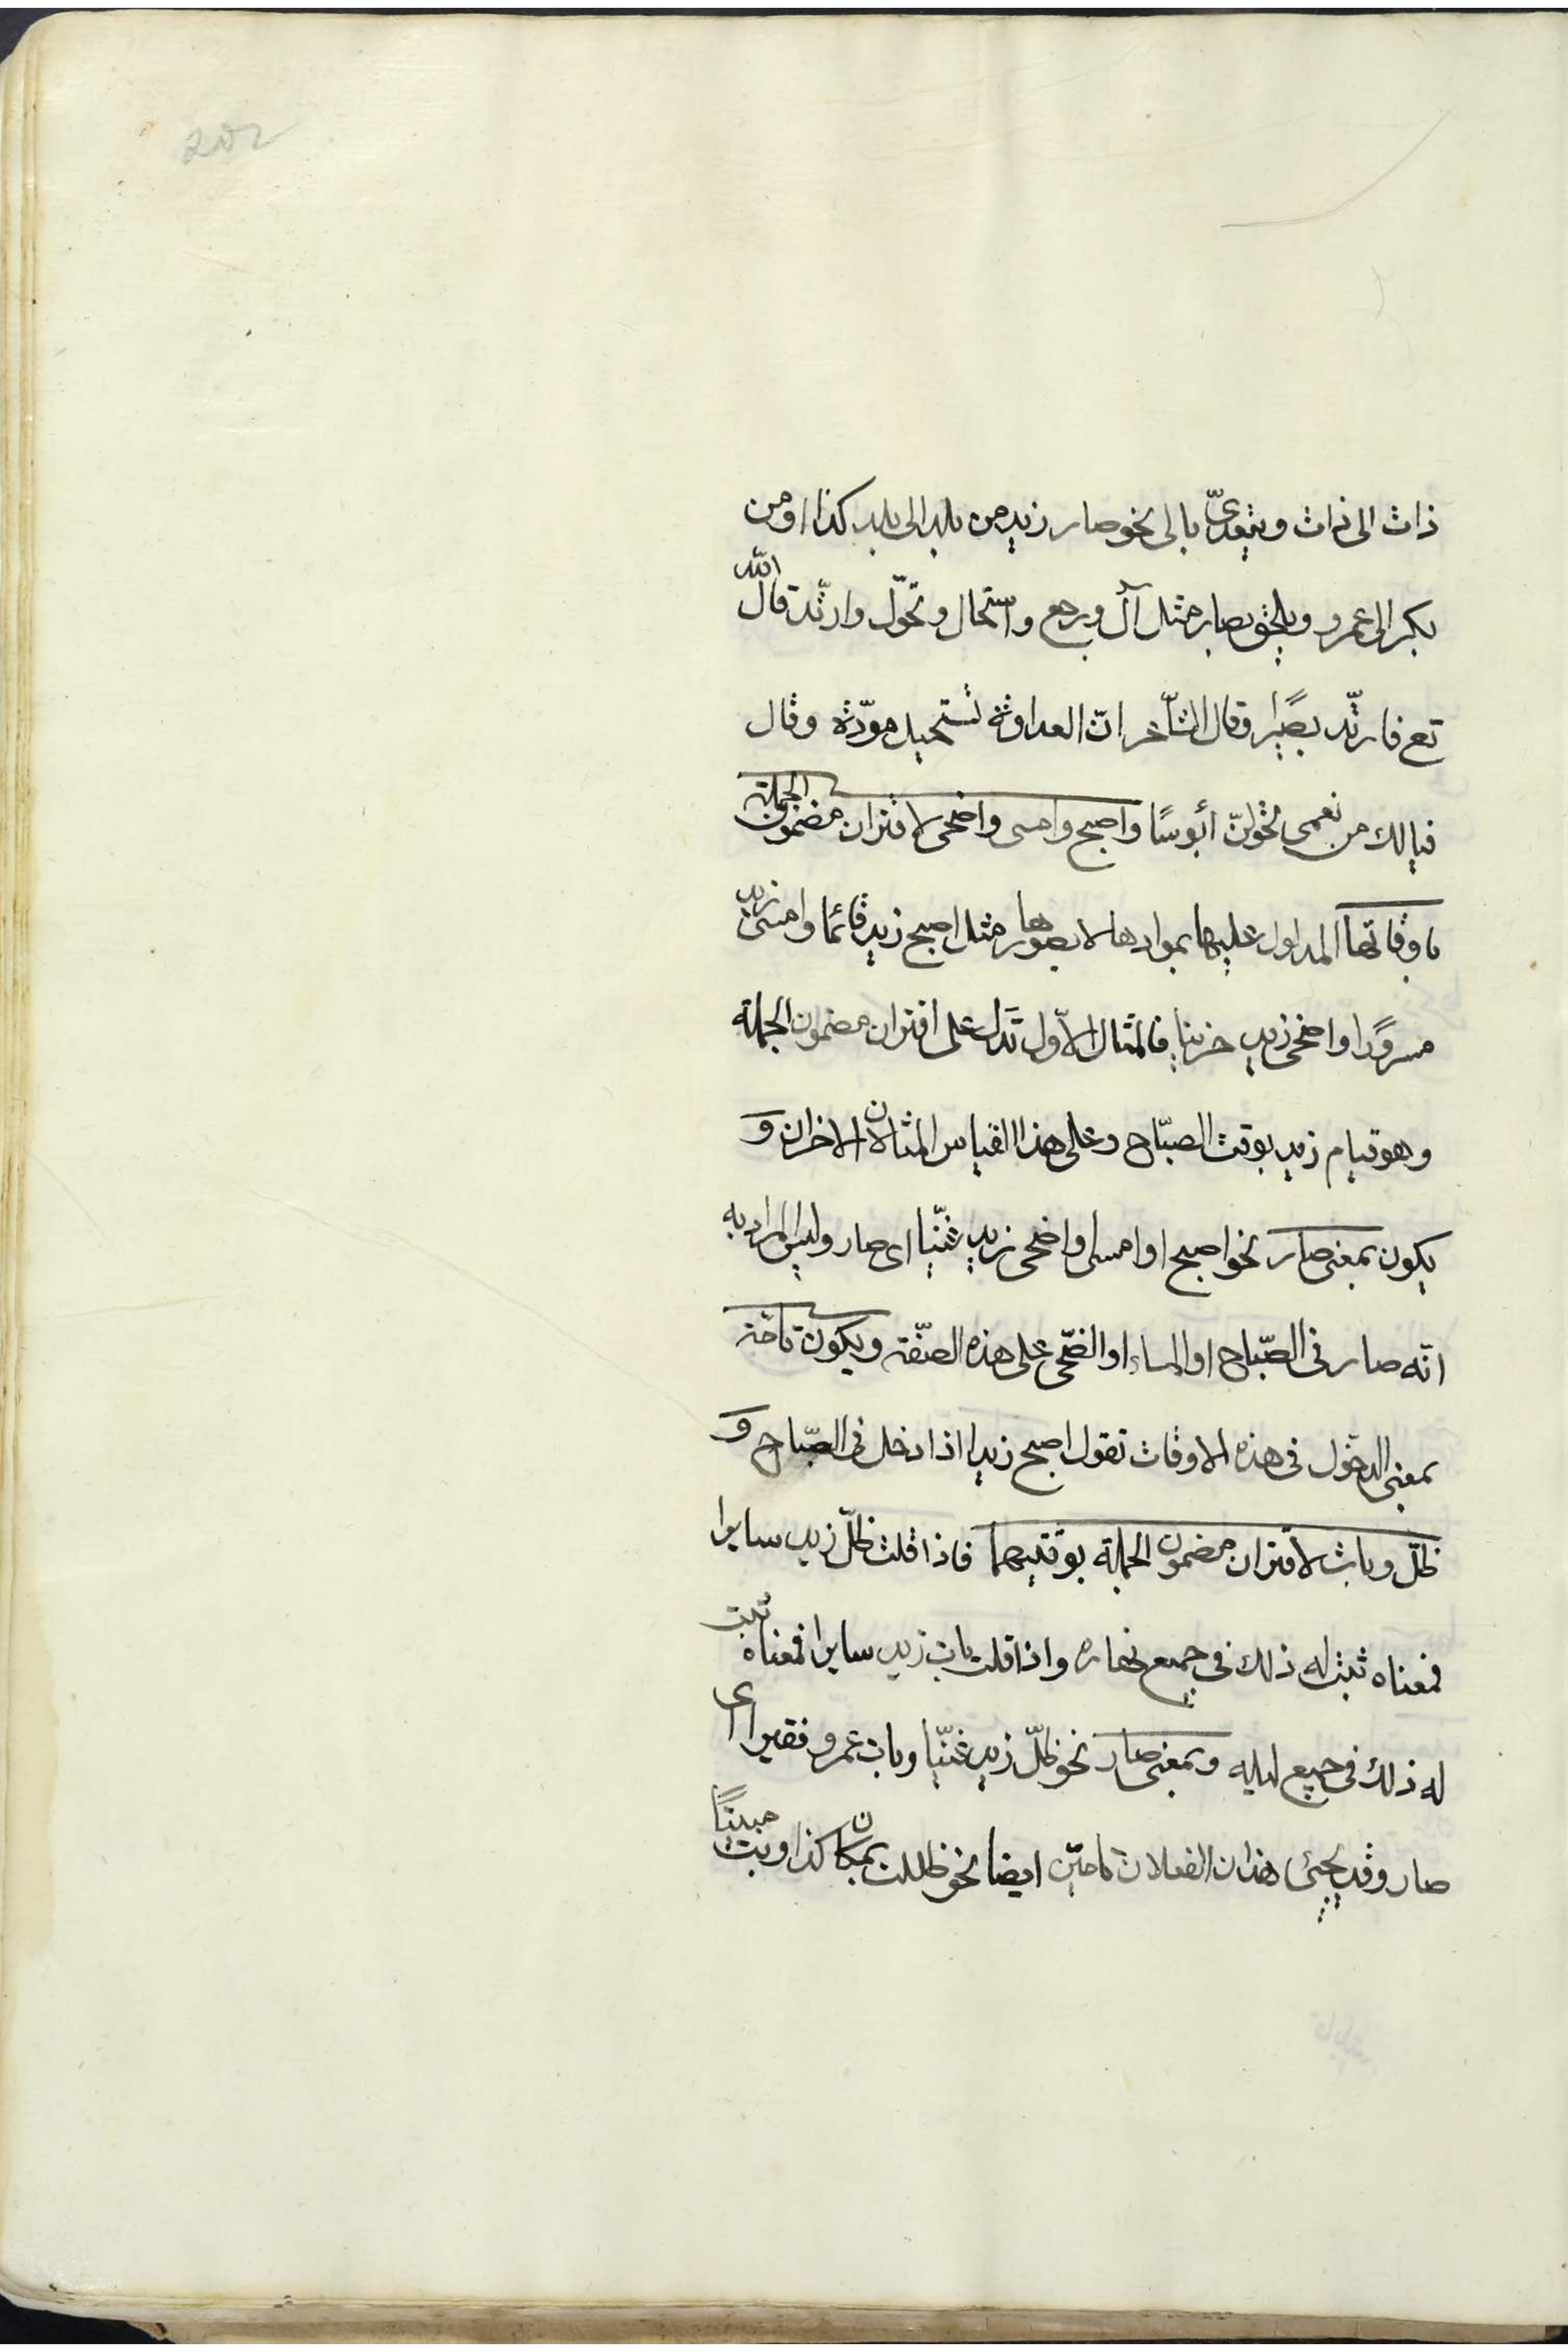 202
ذات الى ذات ويتعدّى بالى نحو صار زيد من بلد الى بلد كذا او من
بكر الى عمرو ويلحق بصار مثل آل ورجع واستحال وتحوّل وارتّد قال الله
تع فارتّد بصيرا وقال الشاخر انّ العداوة تستحيل مودّة وقال
فيالك من نعمى تحولنّ أبوسًا واصبح وامسى واضحى لاقتران مضمون الجملة
باوقاتها المدلول عليها بموادها لا بصورها مثل اصبح زيد قائما وامسى زيد
مسرورًا واضحى زيد حزينا فالمثال الاوّل تدل على اقتران مضمون الجملة
وهو قيام زيد بوقت الصبّاح وعلى هذا القياس المثالان الاخران و
يكون بمعنى صار نحو اصبح او امسى او اضحى زيد غنّيا اى صار وليس المراد به
انّه صار فى الصّباح او المساء او الضّحى على هذه الصّفة ويكون تامّة
بمعنى الدخول فى هذه الاوقات تقول اصبح زيدا اذا دخل فى الصّباح و
ظلّ وبات لاقتران مضمون الجملة بوقتيهما فاذا قلت ظلّ زيد سايرا
فمعناه ثبت له ذلك فى جميع نهاره واذا قلت بات زيد سايرا فمعناه ثبت
له ذلك فى جميع ليله وبمعنى صار نحو ظلّ زيد غنّيا وبات عمرو فقيرا اى
صار وقد يجئ هذان الفعلان تامّين ايضا نحو ظللت بمكان كذا وبت مبيتًا